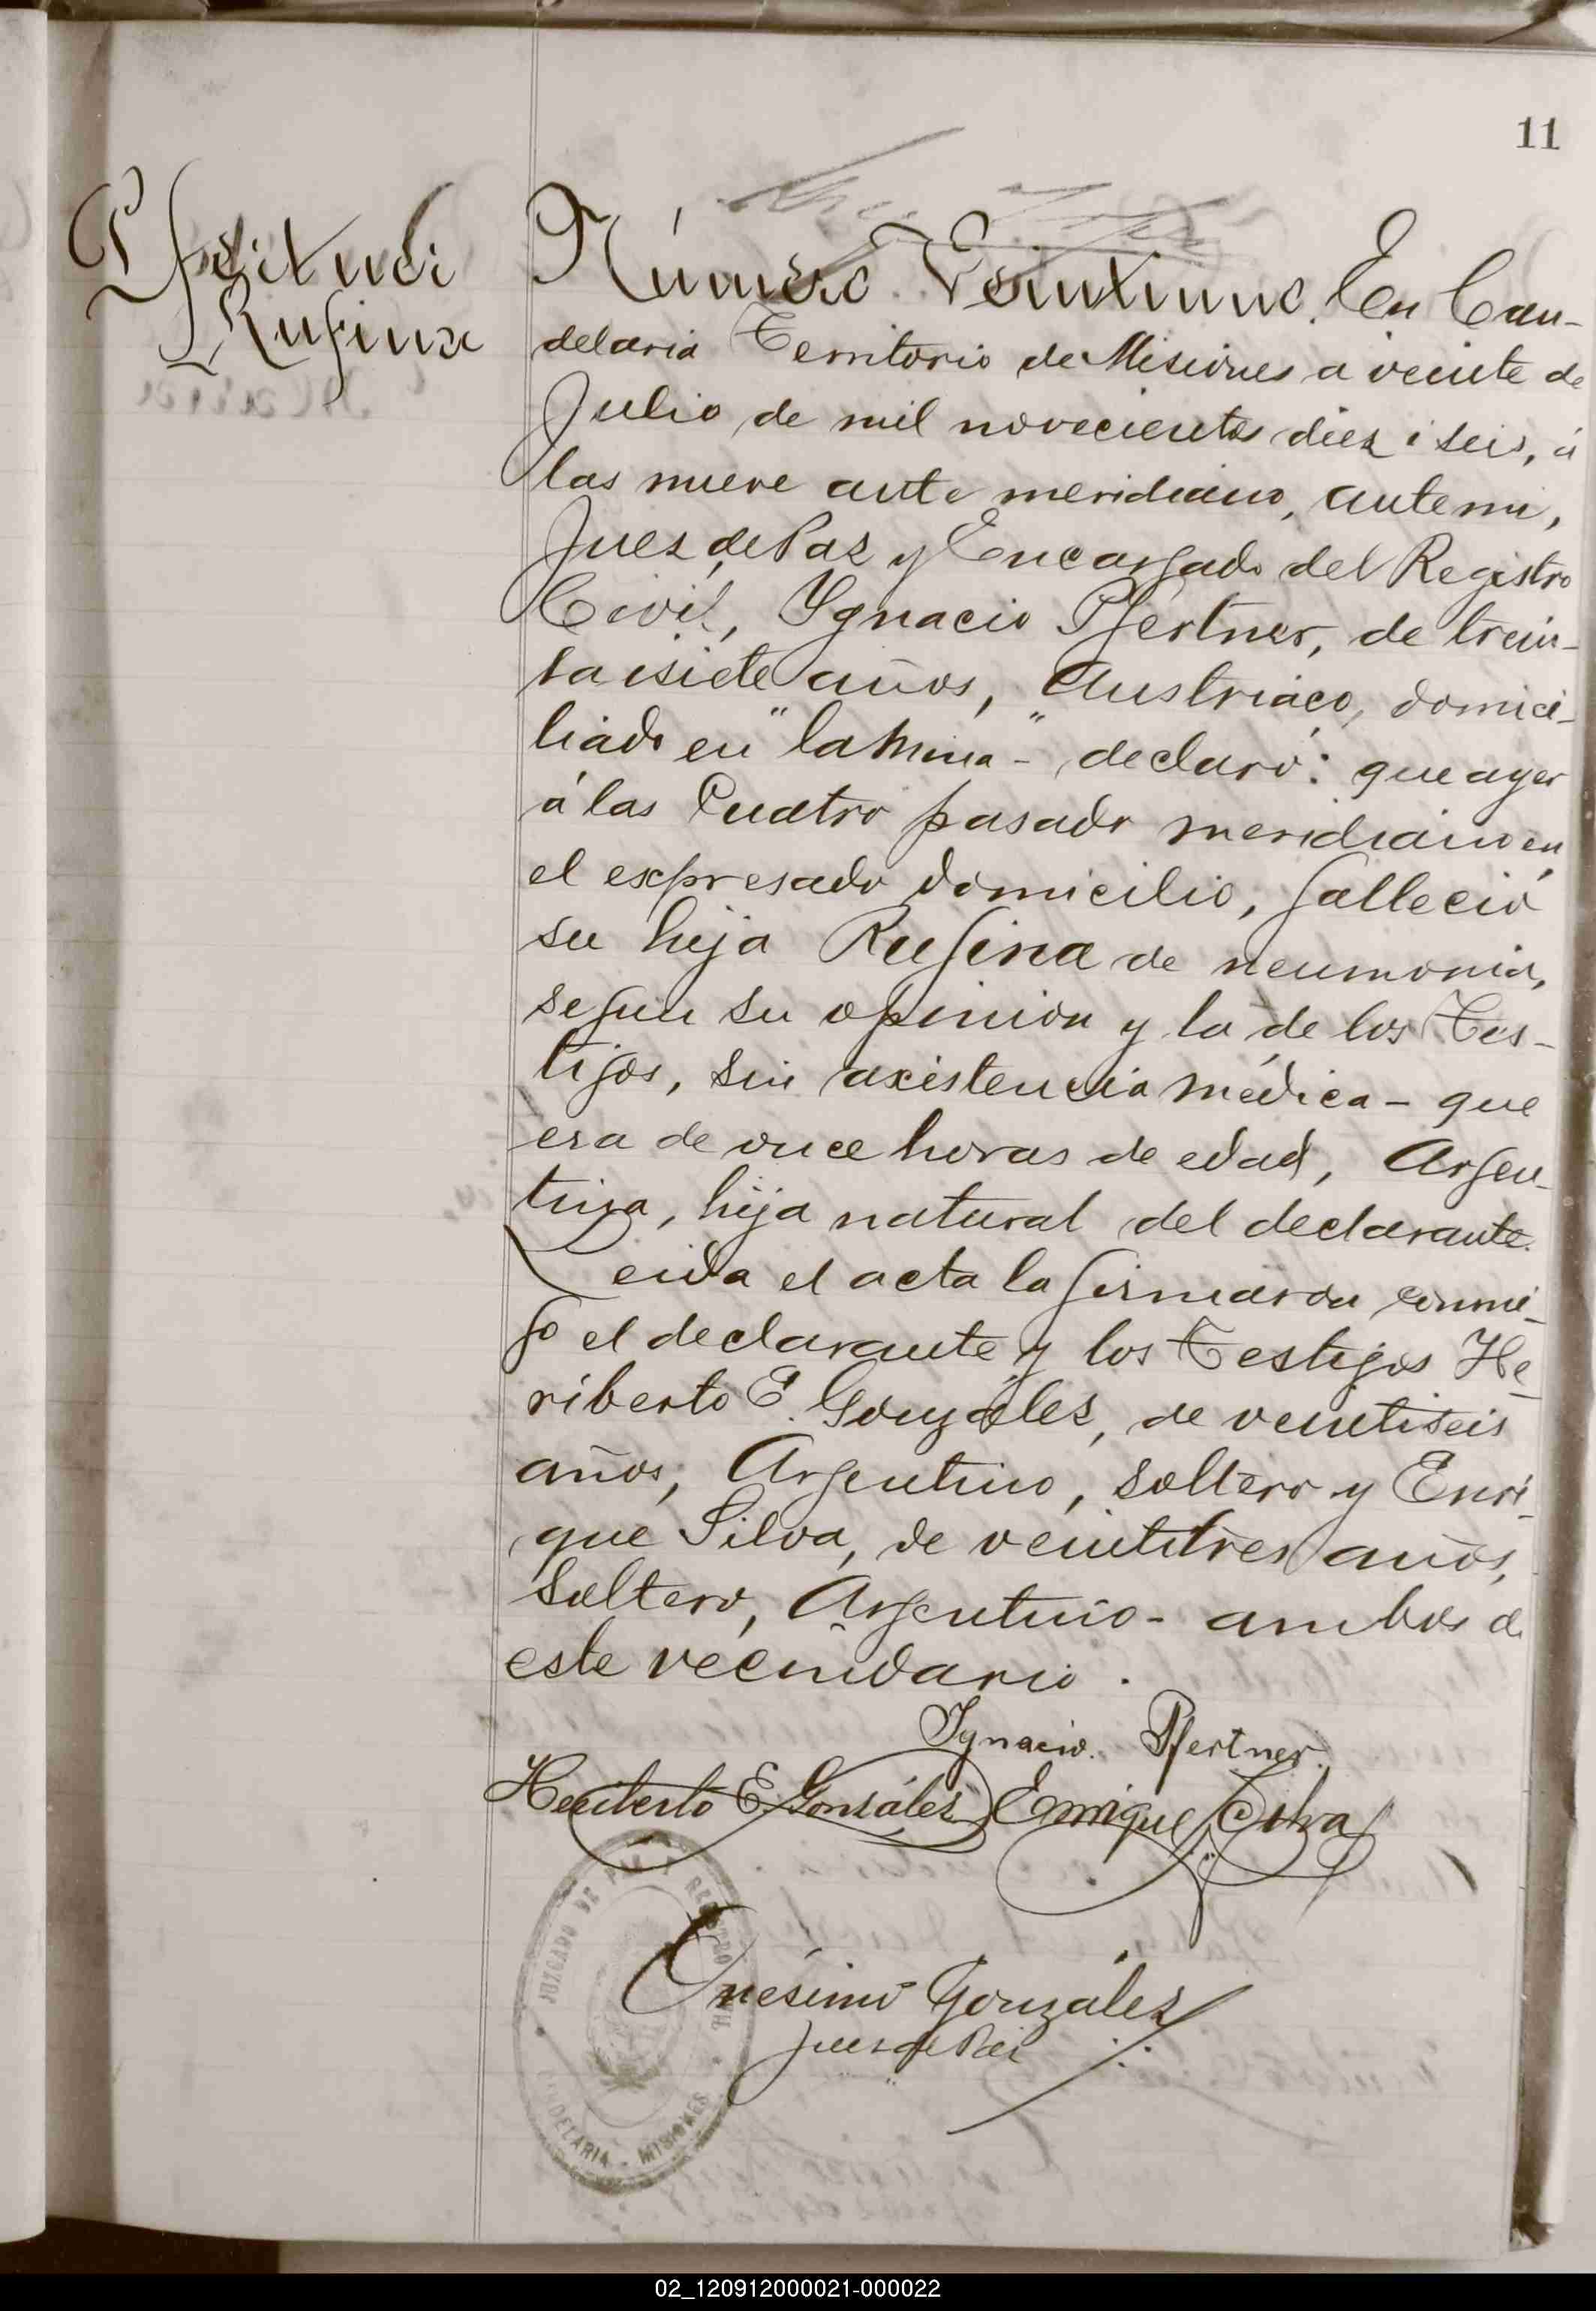 11
Rufina
Número Veintiuno. En Can-
delaria Territorio de Misiones a veinte de
Julio de mil novecientos diez i seis, á
las nueve ante meridiano, ante mi,
Juez de Paz y Encargado del Registro
Civil, Ygnacio Pfertner, de trein-
ta isiete años, Austriaco, domici-
liado en "la Mina"- declaró: que ayer
á las Cuatro pasado meridiano en
el expresado domicilio, falleció
su hija Rufina de neumonia,
segun su opinion y la de los Tes-
tigos, sin axistencia médica - que
era de once horas de edad, Argen-
tina, hija natural del declarante.
Leida el acta la firmaron conmi-
go el declarante y los Testigos He-
riberto E. González, de veintiseis
años, Argentino, soltero y Enri-
que Silva, de veintitres años,
Soltero, Argentino - ambos de
este vecindario.
Ignacio. Pfertner.
Heriberto E. Gonsález Enrique Silva
JUZGADO DE PAZ Y REGISTRO
Onésimo González
Juez de Paz
CANDELARIA - MISIONES
02_120912000021-000022